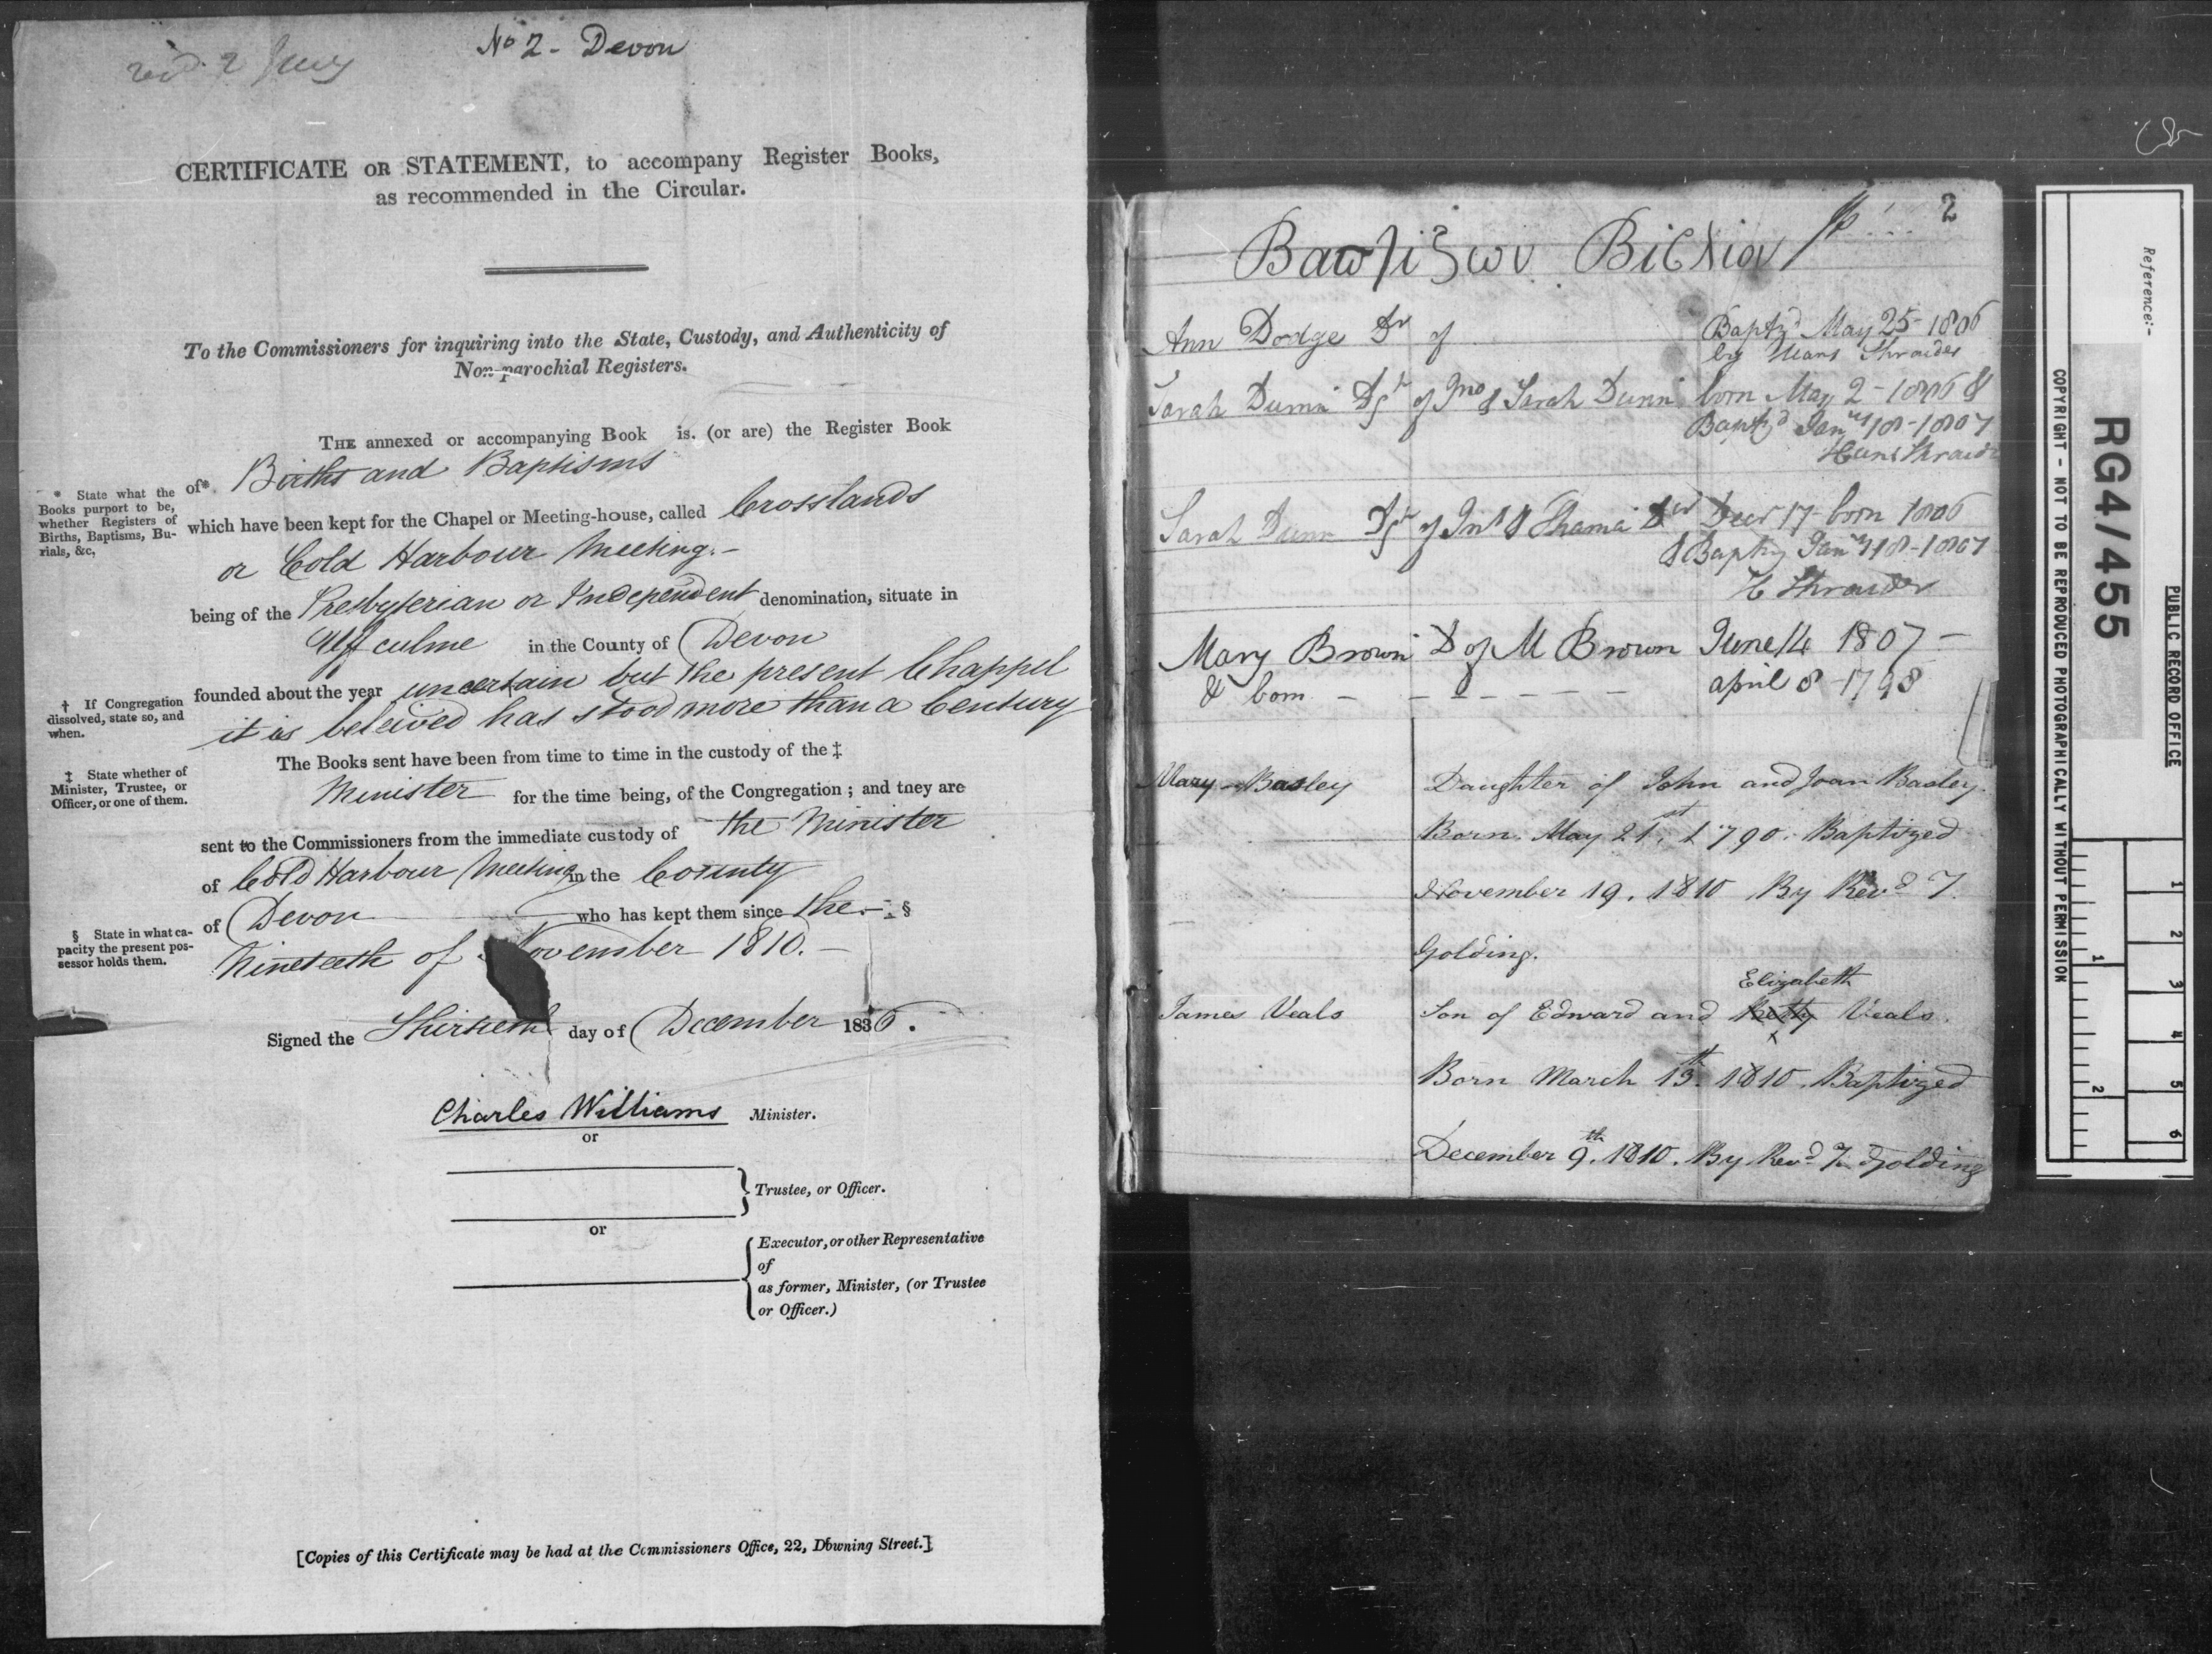 No 2 - Devon
CERTIFICATE OR STATEMENT, to accompany Register Books,
as recommended in the Circular.
To the Commissioners for inquiring into the State, Custody, and Authenticity of
Non-parochial Registers.
THE annexed or accompanying Book is. (or are) the Register Book
of* Births and Baptisms
* State what the
Books purport to be,
whether Registers of
Births, Baptisms, Bu-
rials, &c.
which have been kept for the Chapel or Meeting-house, called Crosslands
or Cold Harbour Meeting. -
being of the Presbyterian or Independent denomination, situate in
Uffculme in the County of Devon
founded about the year uncertain but the present Chappel
it is beleived has stood more than a Century
† If Congregation
dissolved, state so, and
when.
The Books sent have been from time to time in the custody of the ‡
Minister for the time being, of the Congregation ; and they are
‡ State whether of
Minister, Trustee, or
Officer, or one of them.
sent to the Commissioners from the immediate custody of the Minister
of Cold Harbour Meeting in the County
of Devon who has kept them since the - §
Nineteeth of November 1810. -
§ State in what ca-
pacity the present pos-
sessor holds them.
Signed the Thirtieth day of December 1836.
Charles Williams Minister.
or
Trustee, or Officer.
or
Executor, or other Representative
of
as former, Minister, (or Trustee
or Officer.)
[Copies of this Certificate may be had at the Commissioners Office, 22, Downing Street.]
2
Ann Dodge Dr of Baptzd May 25 - 1806
by Hans Shraider
Sarah Dunn Dr of Jno & Sarah Dunn born May 2 - 1806 &
Baptzd Jany 18 - 1807
Hans Shraider
Sarah Dunn Dr of Jno & Decr 17 born 1806
& Baptz Jany 18 - 1807
H Shraider
Mary Brown D of M Brown June 14 1807 -
& born - - - - - - - april 8 - 1798
Mary Basley Daughter of John and Joan Basley.
Born. May 21st. 1790. Baptized
November 19. 1810 By Revd T.
Golding.
Elizabeth
James Veals Son of Edward and Betty Veals.
Born March 13th. 1810. Baptized
December 9th. 1810. By Revd T. Golding
Reference:-
RG4/455
PUBLIC RECORD OFFICE
COPYRIGHT - NOT TO BE REPRODUCED PHOTOGRAPHICALLY WITHOUT PERMISSION
1
2
1
2
3
4
5
6